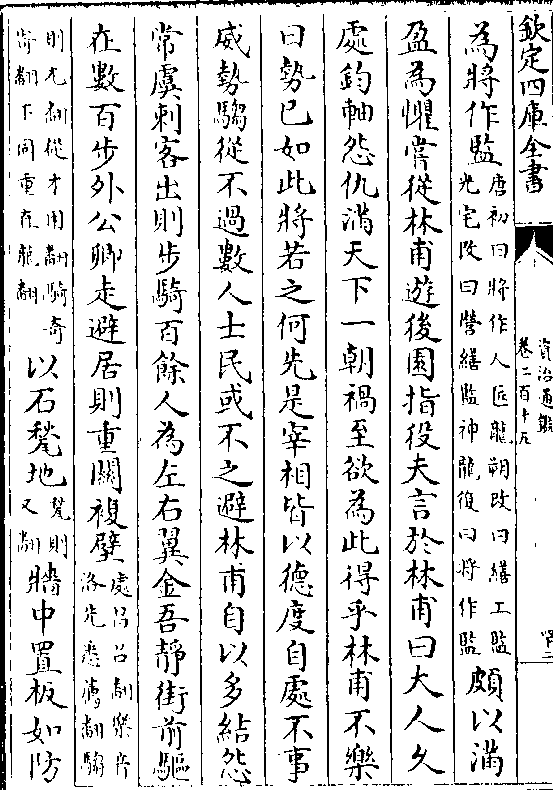 欽定四庫全書
資治通鑑
卷二百十五
為將作監唐初曰將作大匠龍朔改曰繕工監
光宅改曰營繕監神龍復曰將作監頗以滿
盈為懼嘗從林甫遊後園指役夫言於林甫曰大人久
處鈞軸怨仇滿天下一朝禍至欲為此得乎林甫不樂
曰勢已如此將若之何先是宰相皆以德度自處不事
威勢騶從不過數人士民或不之避林甫自以多結怨
常虞刺客出則步騎百餘人為左右翼金吾靜街前驅
在數百步外公卿走避居則重關複壁處昌呂翻樂音
洛先悉薦翻騶
則尤翻從才用翻騎奇
寄翻下同重直龍翻以石甃地甃則
又翻牆中置板如防